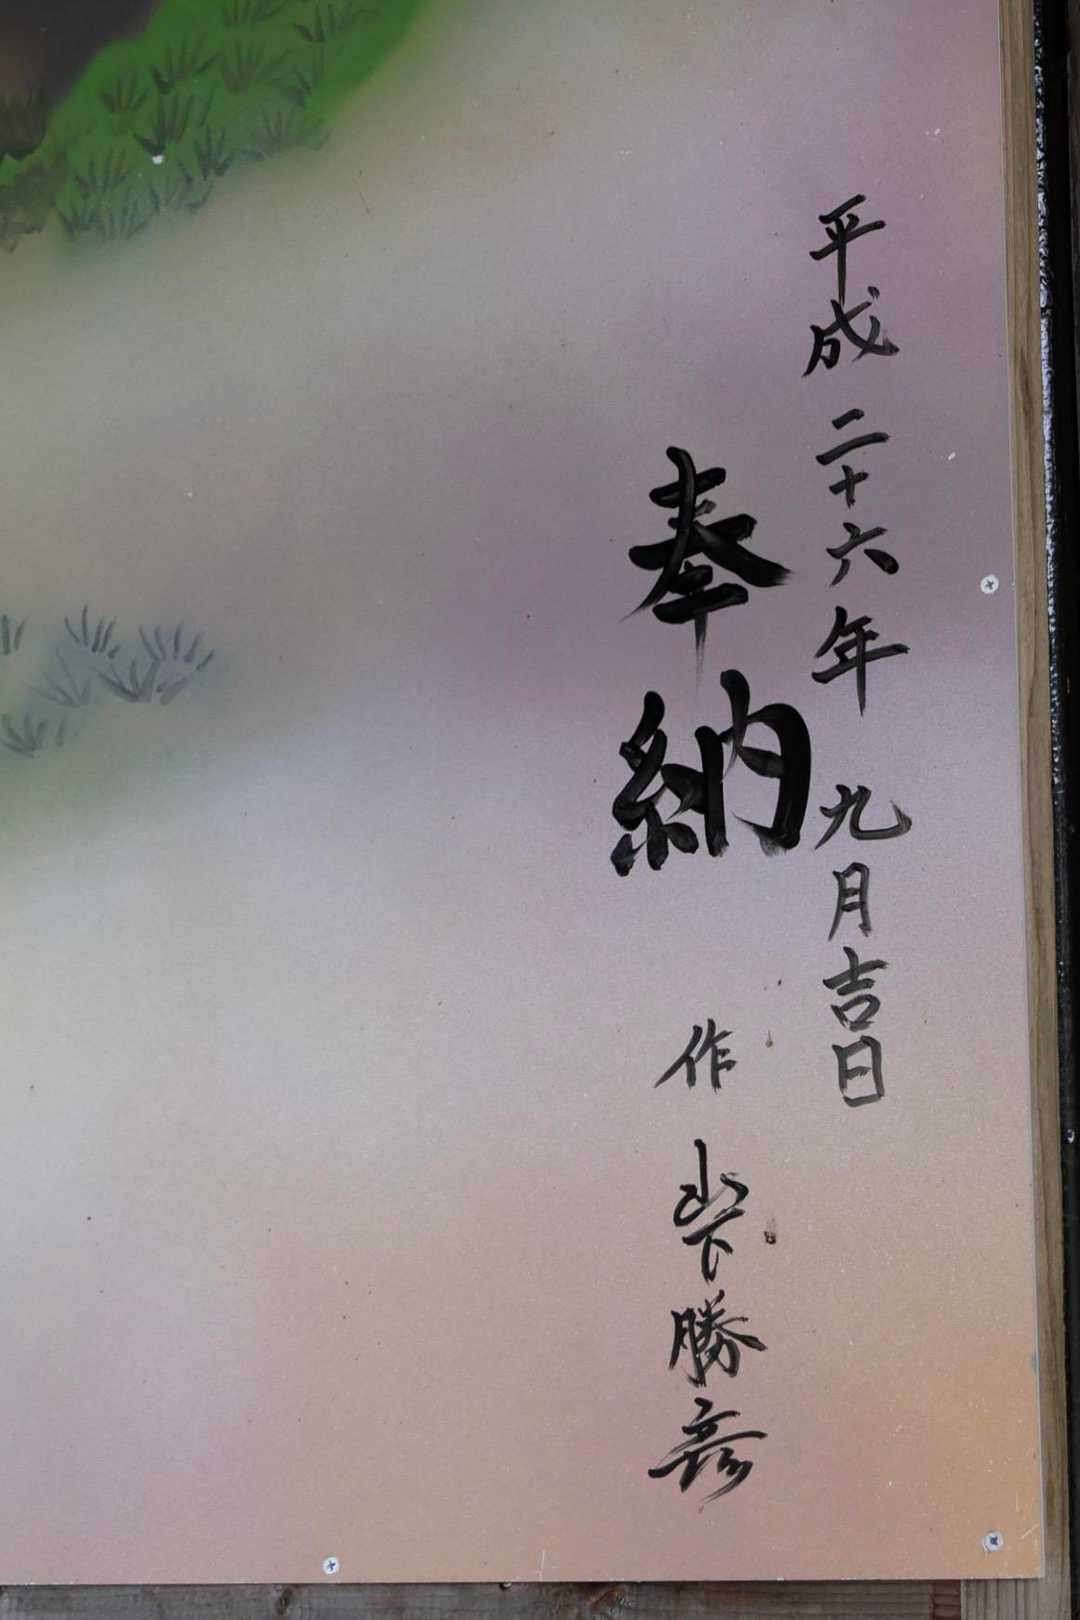 平成二十六年九月吉日
奉納 作 山下勝彦